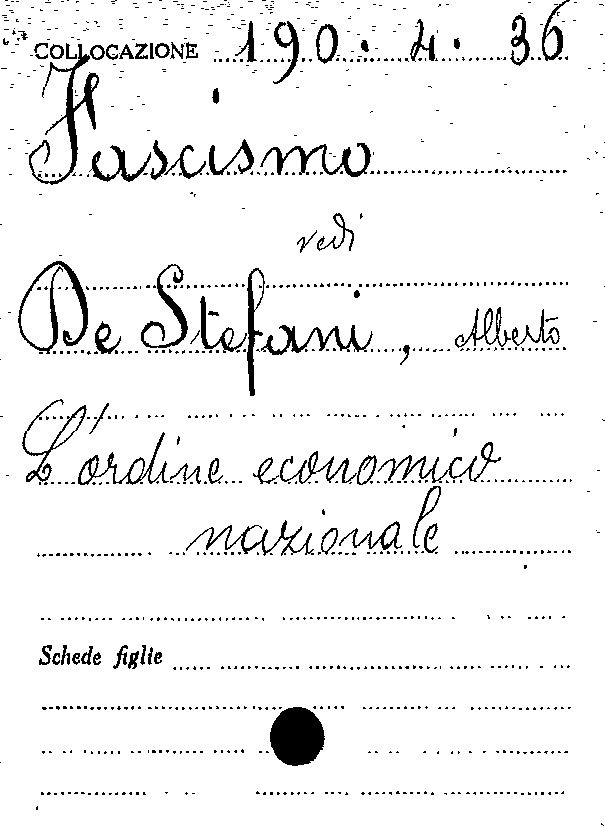 COLLOCAZIONE 190. 4. 36
Fascismo
vedi
De Stefani, Alberto
L'ordine economico
nazionale
Schede figlie